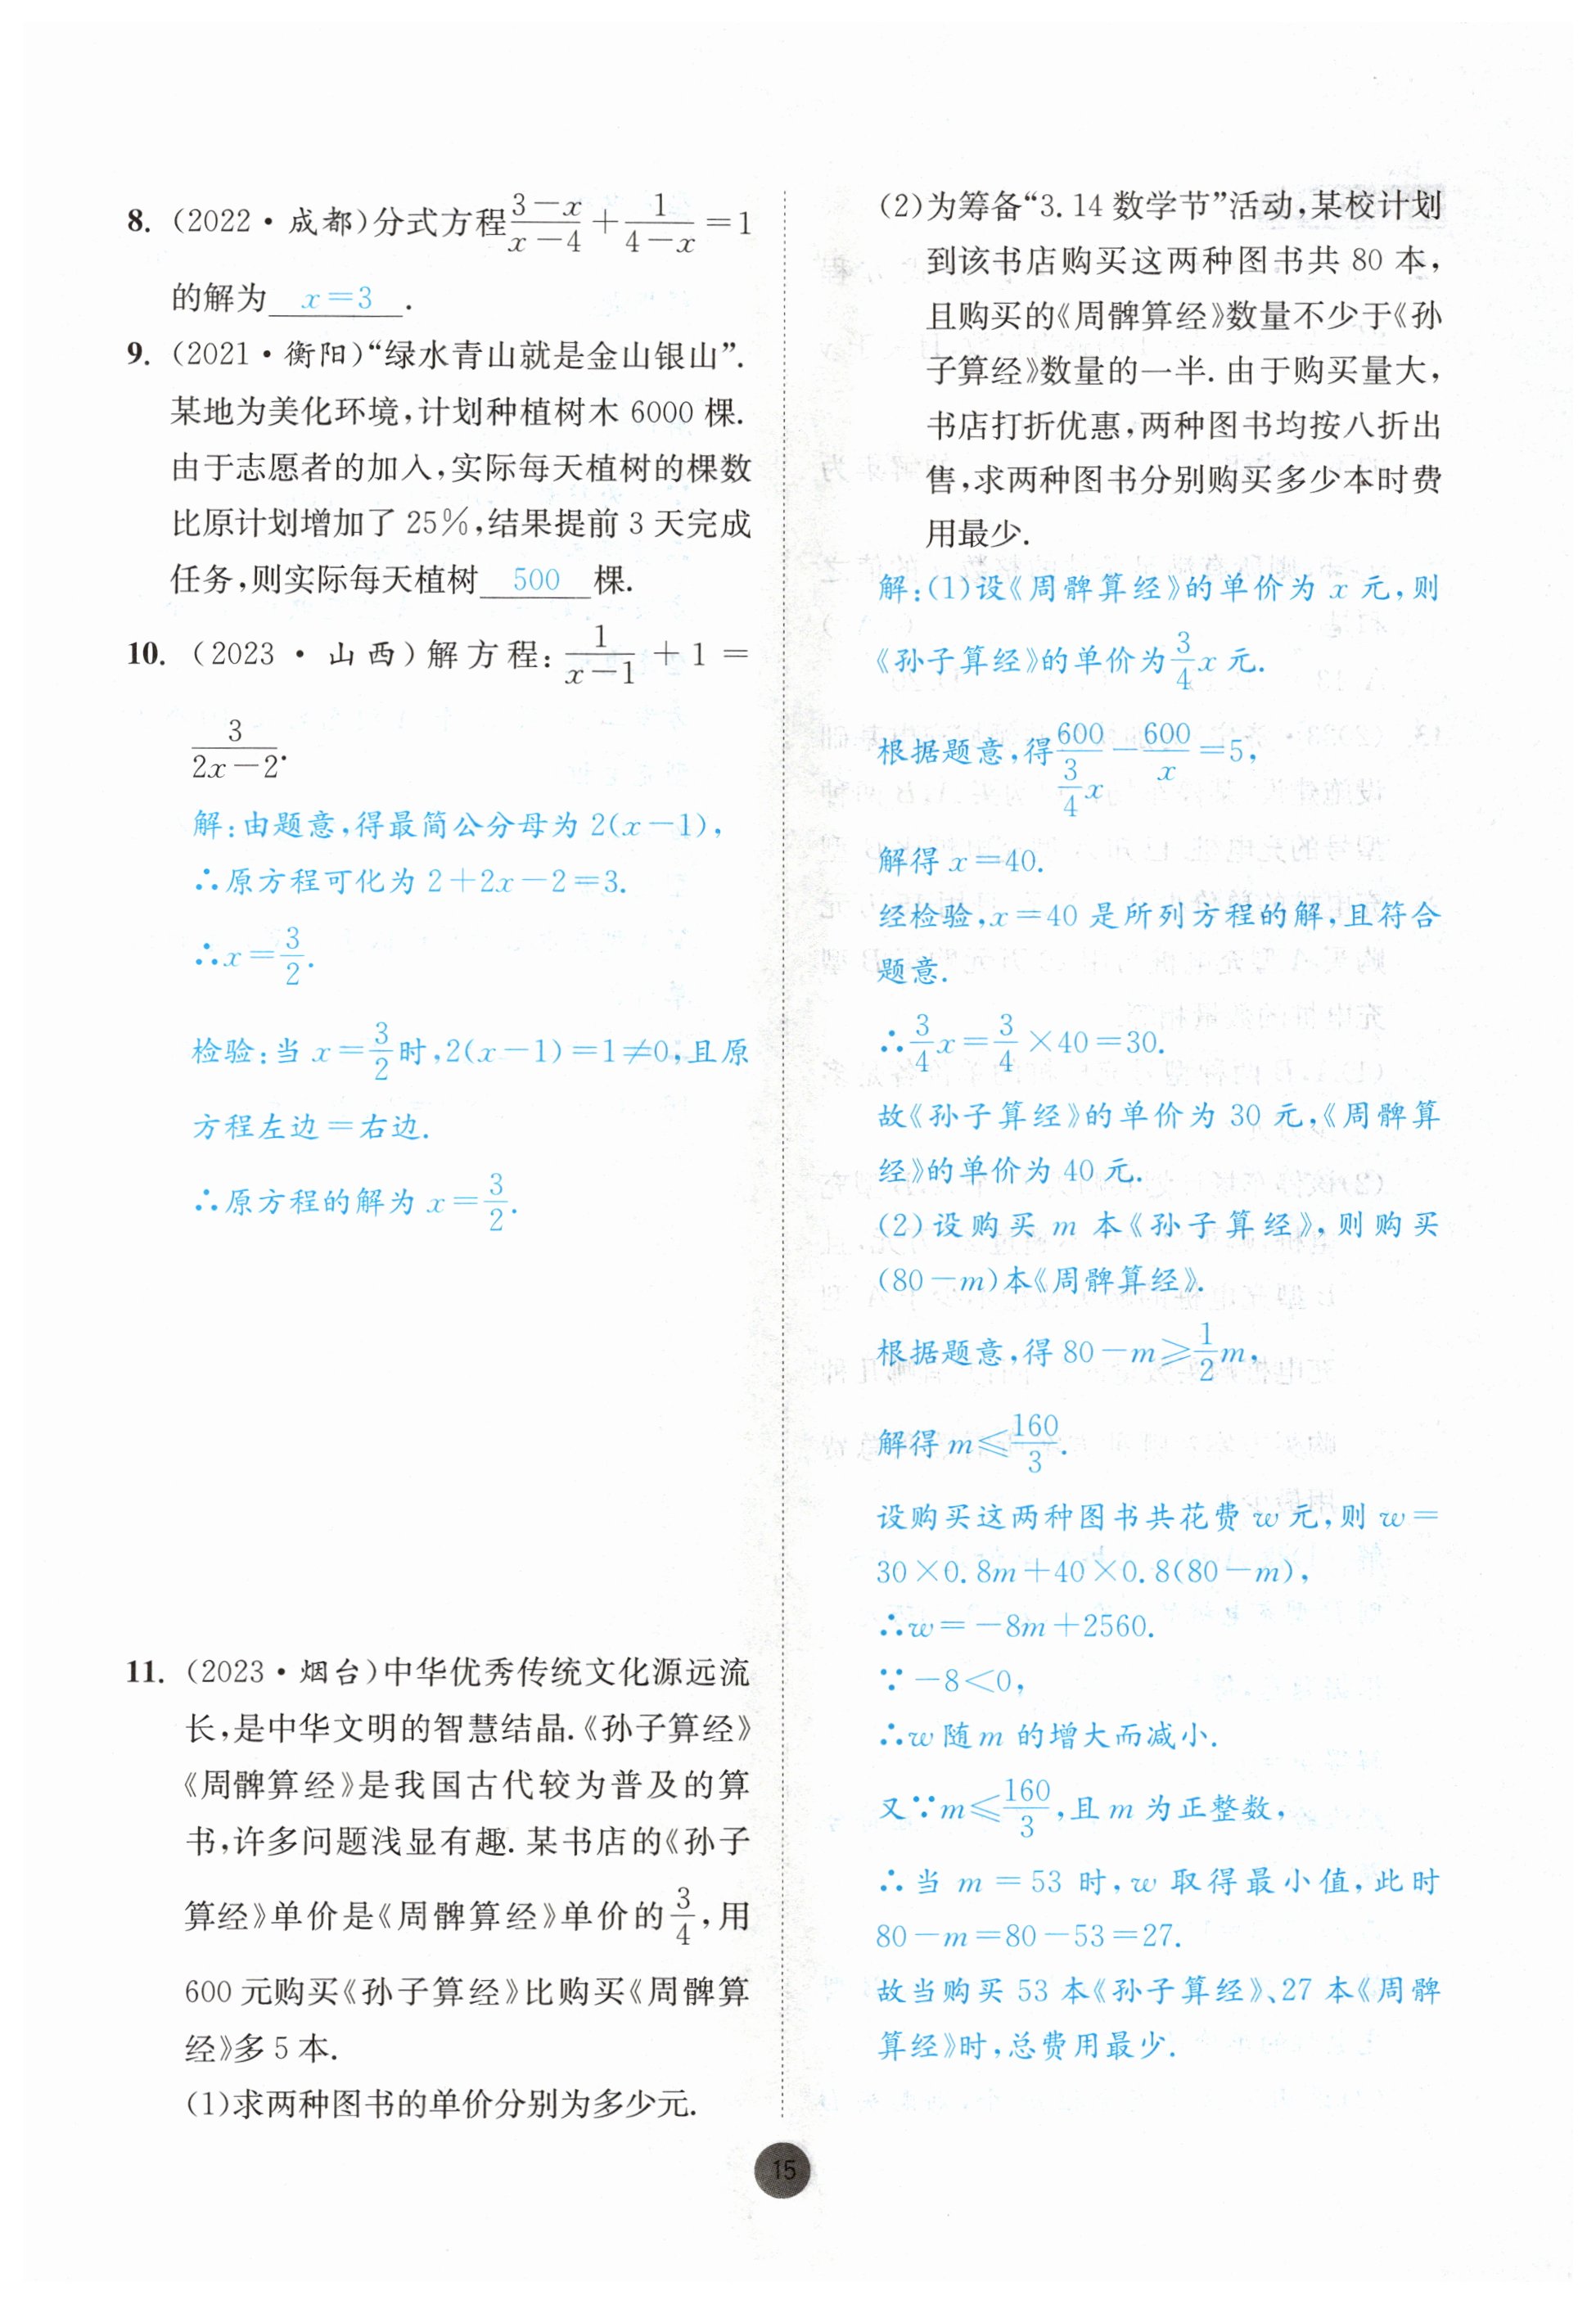 8. (2022·成都)分式方程$\frac{3-x}{x-4}+\frac{1}{4-x}=1$
的解为 x=3 .
9. (2021·衡阳)“绿水青山就是金山银山”.
某地为美化环境,计划种植树木 6000 棵.
由于志愿者的加入,实际每天植树的棵数
比原计划增加了 25%,结果提前 3 天完成
任务,则实际每天植树 500 棵.
10. (2023·山西)解方程:$\frac{1}{x-1}+1=$
$\frac{3}{2x-2}$.
解:由题意,得最简公分母为 2(x-1),
∴原方程可化为 2+2x-2=3.
∴x=$\frac{3}{2}$.
检验:当 x=$\frac{3}{2}$时,2(x-1)=1≠0,且原
方程左边=右边.
∴原方程的解为 x=$\frac{3}{2}$.
11. (2023·烟台)中华优秀传统文化源远流
长,是中华文明的智慧结晶.《孙子算经》
《周髀算经》是我国古代较为普及的算
书,许多问题浅显有趣. 某书店的《孙子
算经》单价是《周髀算经》单价的$\frac{3}{4}$,用
600 元购买《孙子算经》比购买《周髀算
经》多 5 本.
(1)求两种图书的单价分别为多少元.
(2)为筹备“3.14 数学节”活动,某校计划
到该书店购买这两种图书共 80 本,
且购买的《周髀算经》数量不少于《孙
子算经》数量的一半. 由于购买量大,
书店打折优惠,两种图书均按八折出
售,求两种图书分别购买多少本时费
用最少.
解:(1)设《周髀算经》的单价为 x 元,则
《孙子算经》的单价为$\frac{3}{4}$x 元.
根据题意,得$\frac{600}{\frac{3}{4}x}-\frac{600}{x}=5$,
解得 x=40.
经检验,x=40 是所列方程的解,且符合
题意.
∴$\frac{3}{4}$x=$\frac{3}{4}$×40=30.
故《孙子算经》的单价为 30 元,《周髀算
经》的单价为 40 元.
(2)设购买 m 本《孙子算经》,则购买
(80-m)本《周髀算经》.
根据题意,得 80-m≥$\frac{1}{2}$m,
解得 m≤$\frac{160}{3}$.
设购买这两种图书共花费 w 元,则 w=
30×0.8m+40×0.8(80-m),
∴w=-8m+2560.
∵-8<0,
∴w 随 m 的增大而减小.
又∵m≤$\frac{160}{3}$,且 m 为正整数,
∴当 m=53 时,w 取得最小值,此时
80-m=80-53=27.
故当购买 53 本《孙子算经》、27 本《周髀
算经》时,总费用最少.
15